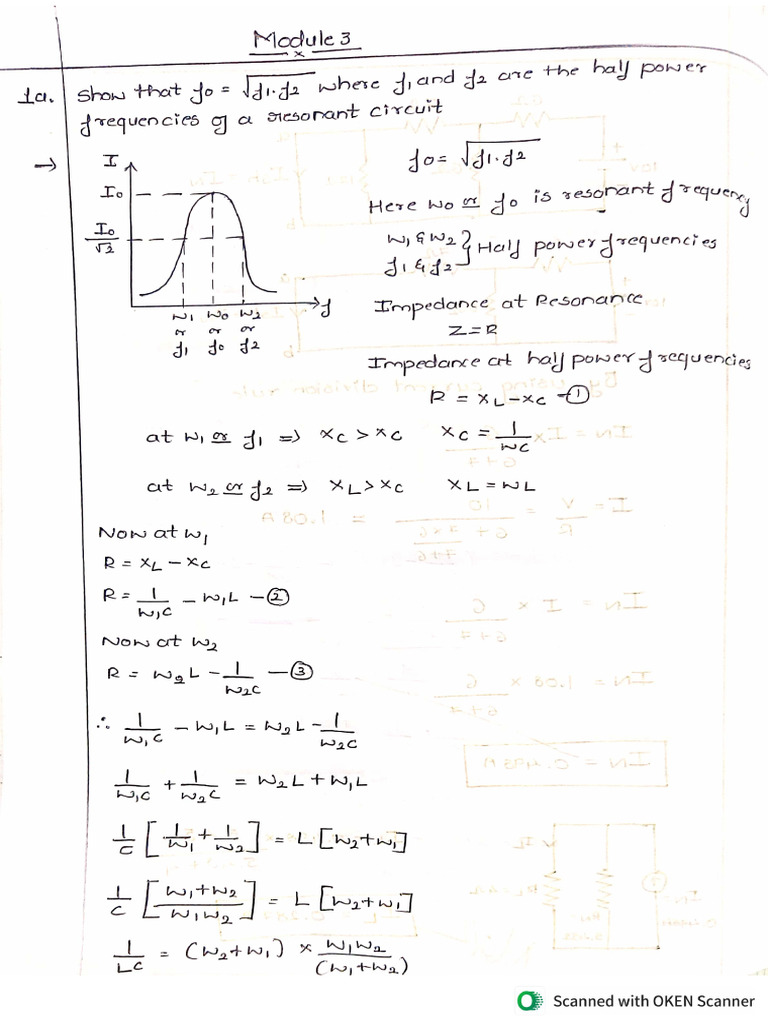 Module 3
1a. Show that f0 = √f1.f2 where f1 and f2 are the half power
frequencies of a resonant circuit
→ I
I0
I0/√2
f
w1 w0 w2
or or or
f1 f0 f2
f0 = √f1.f2
Here w0 or f0 is resonant frequency
w1 & w2 } Half power frequencies
f1 & f2
Impedance at Resonance
Z = R
Impedance at half power frequencies
R = XL - XC - ①
at w1 or f1 => XC > XC XC = 1/wC
at w2 or f2 => XL > XC XL = wL
Now at w1
R = XL - XC
R = 1/w1C - w1L - ②
Now at w2
R = w2L - 1/w2C - ③
∴ 1/w1C - w1L = w2L - 1/w2C
1/w1C + 1/w2C = w2L + w1L
1/C [1/w1 + 1/w2] = L [w2 + w1]
1/C [w1 + w2/w1w2] = L [w2 + w1]
1/LC = (w2 + w1) × w1w2/(w1 + w2)
Scanned with OKEN Scanner